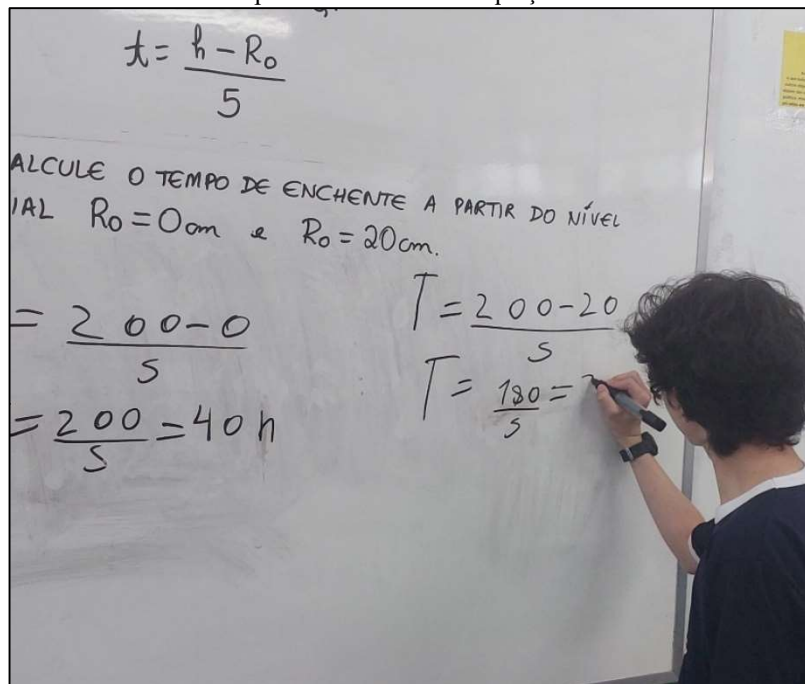 t = h - R₀
5
ALCULE O TEMPO DE ENCHENTE A PARTIR DO NÍVEL
IAL R₀ = 0cm e R₀ = 20cm.
= 200-0
5
= 200 = 40 h
5
T = 200-20
5
T = 180 =
5